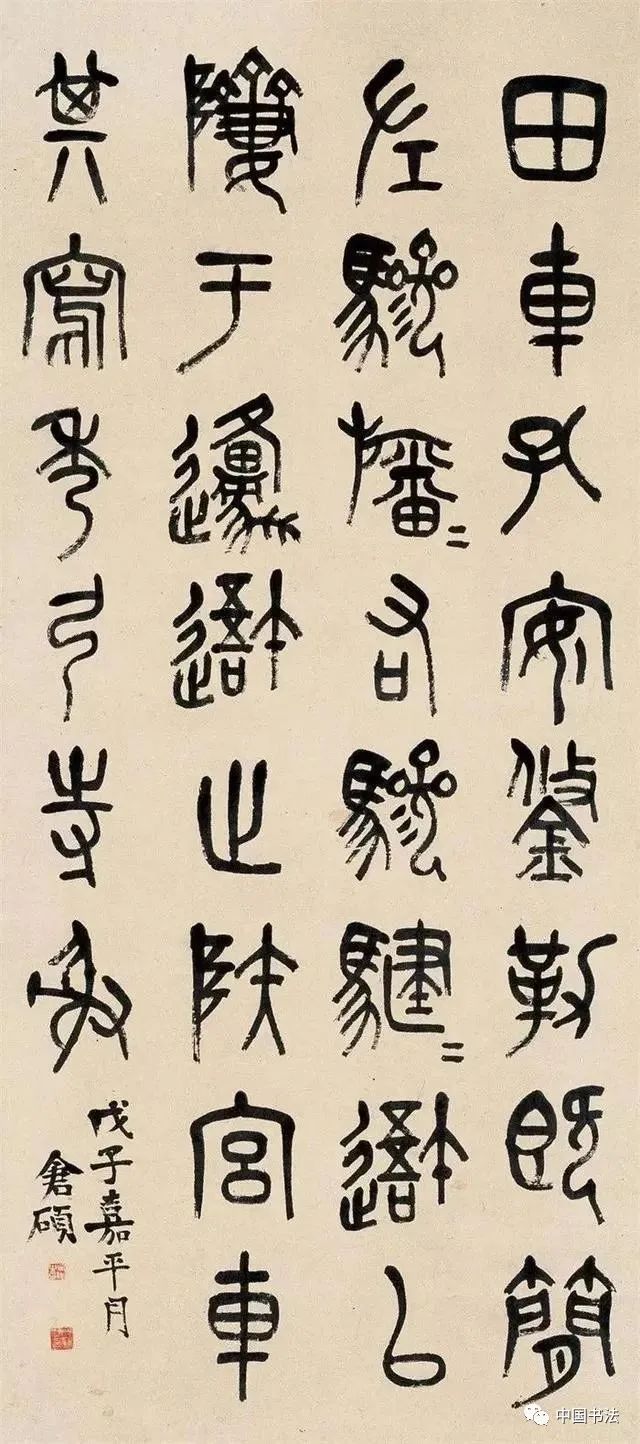 田車孔安鋚勒既簡
左驂旛〻右驂騝〻以
隮于邍止陕宮車
其寫秀弓寺射
戊子嘉平月
倉碩
中国书法